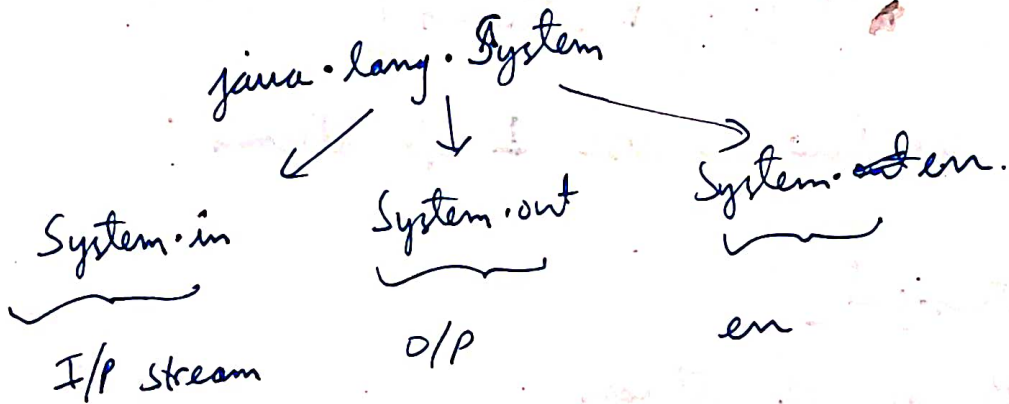 java.lang.System
System.in System.out System.err.
I/P stream O/P err